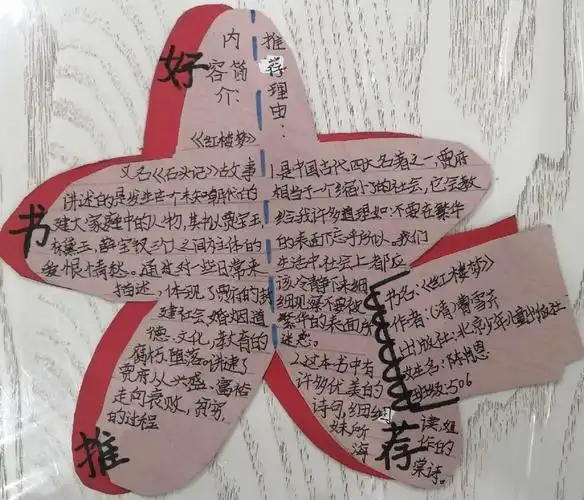 好书推荐
内容简介:
《红楼梦》
又名《石头记》故事
讲述的是发生在一个未知朝代的
建大家庭中的人物,其书以贾宝玉
林黛玉,薛宝钗三个人之间为主体的
爱恨情愁。通过对一些日常来
描述,体现了贾府的封
建社会婚姻道
德、文化,教育的
腐朽、堕落。讲述了
贾府从兴盛、富裕
走向衰败,贫穷
的过程
推荐理由:
1.是中国古代四大名著之一,贾府
相当于一个缩小了的社会,它会教
给我许多道理如:不要在繁华
的表面下忘乎所以。我们
生活中社会上都应
该冷静下来细
细观察不要被
繁华的表面所
迷惑。
2.这本书中有
许多优美的
诗句,细细
读,姐
妹所作的
菜诗。
书名:《红楼梦》
作者:(清)曹雪芹
出版社:北京少年儿童出版社
姓名:陈
班级:506